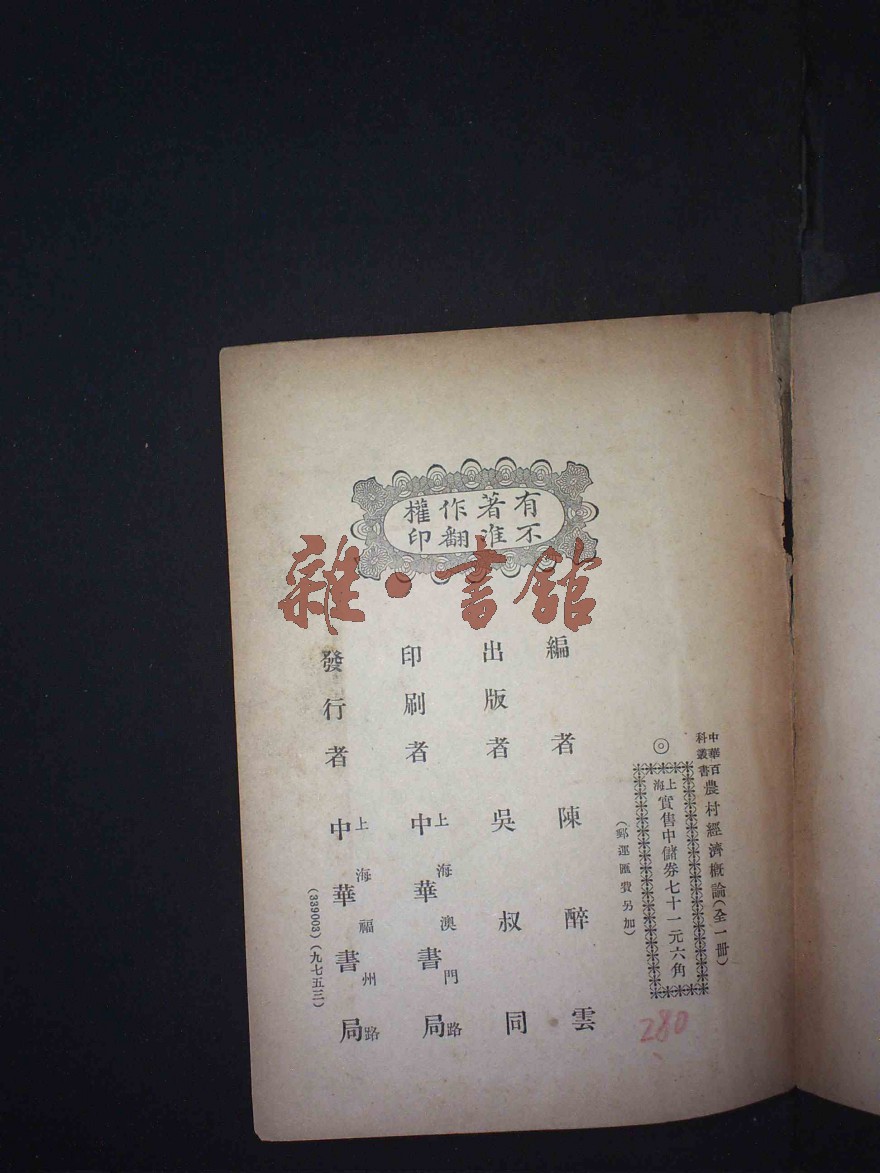 有著作權
不准翻印
雜·書館
中華百科叢書 農村經濟概論(全一冊)
◎上海實售中儲券七十一元六角
(郵運匯費另加)
編者 陳醉雲
出版者 吳叔同
印刷者 上海澳門路 中華書局
發行者 上海福州路 中華書局
(339003)(九七五三)
280